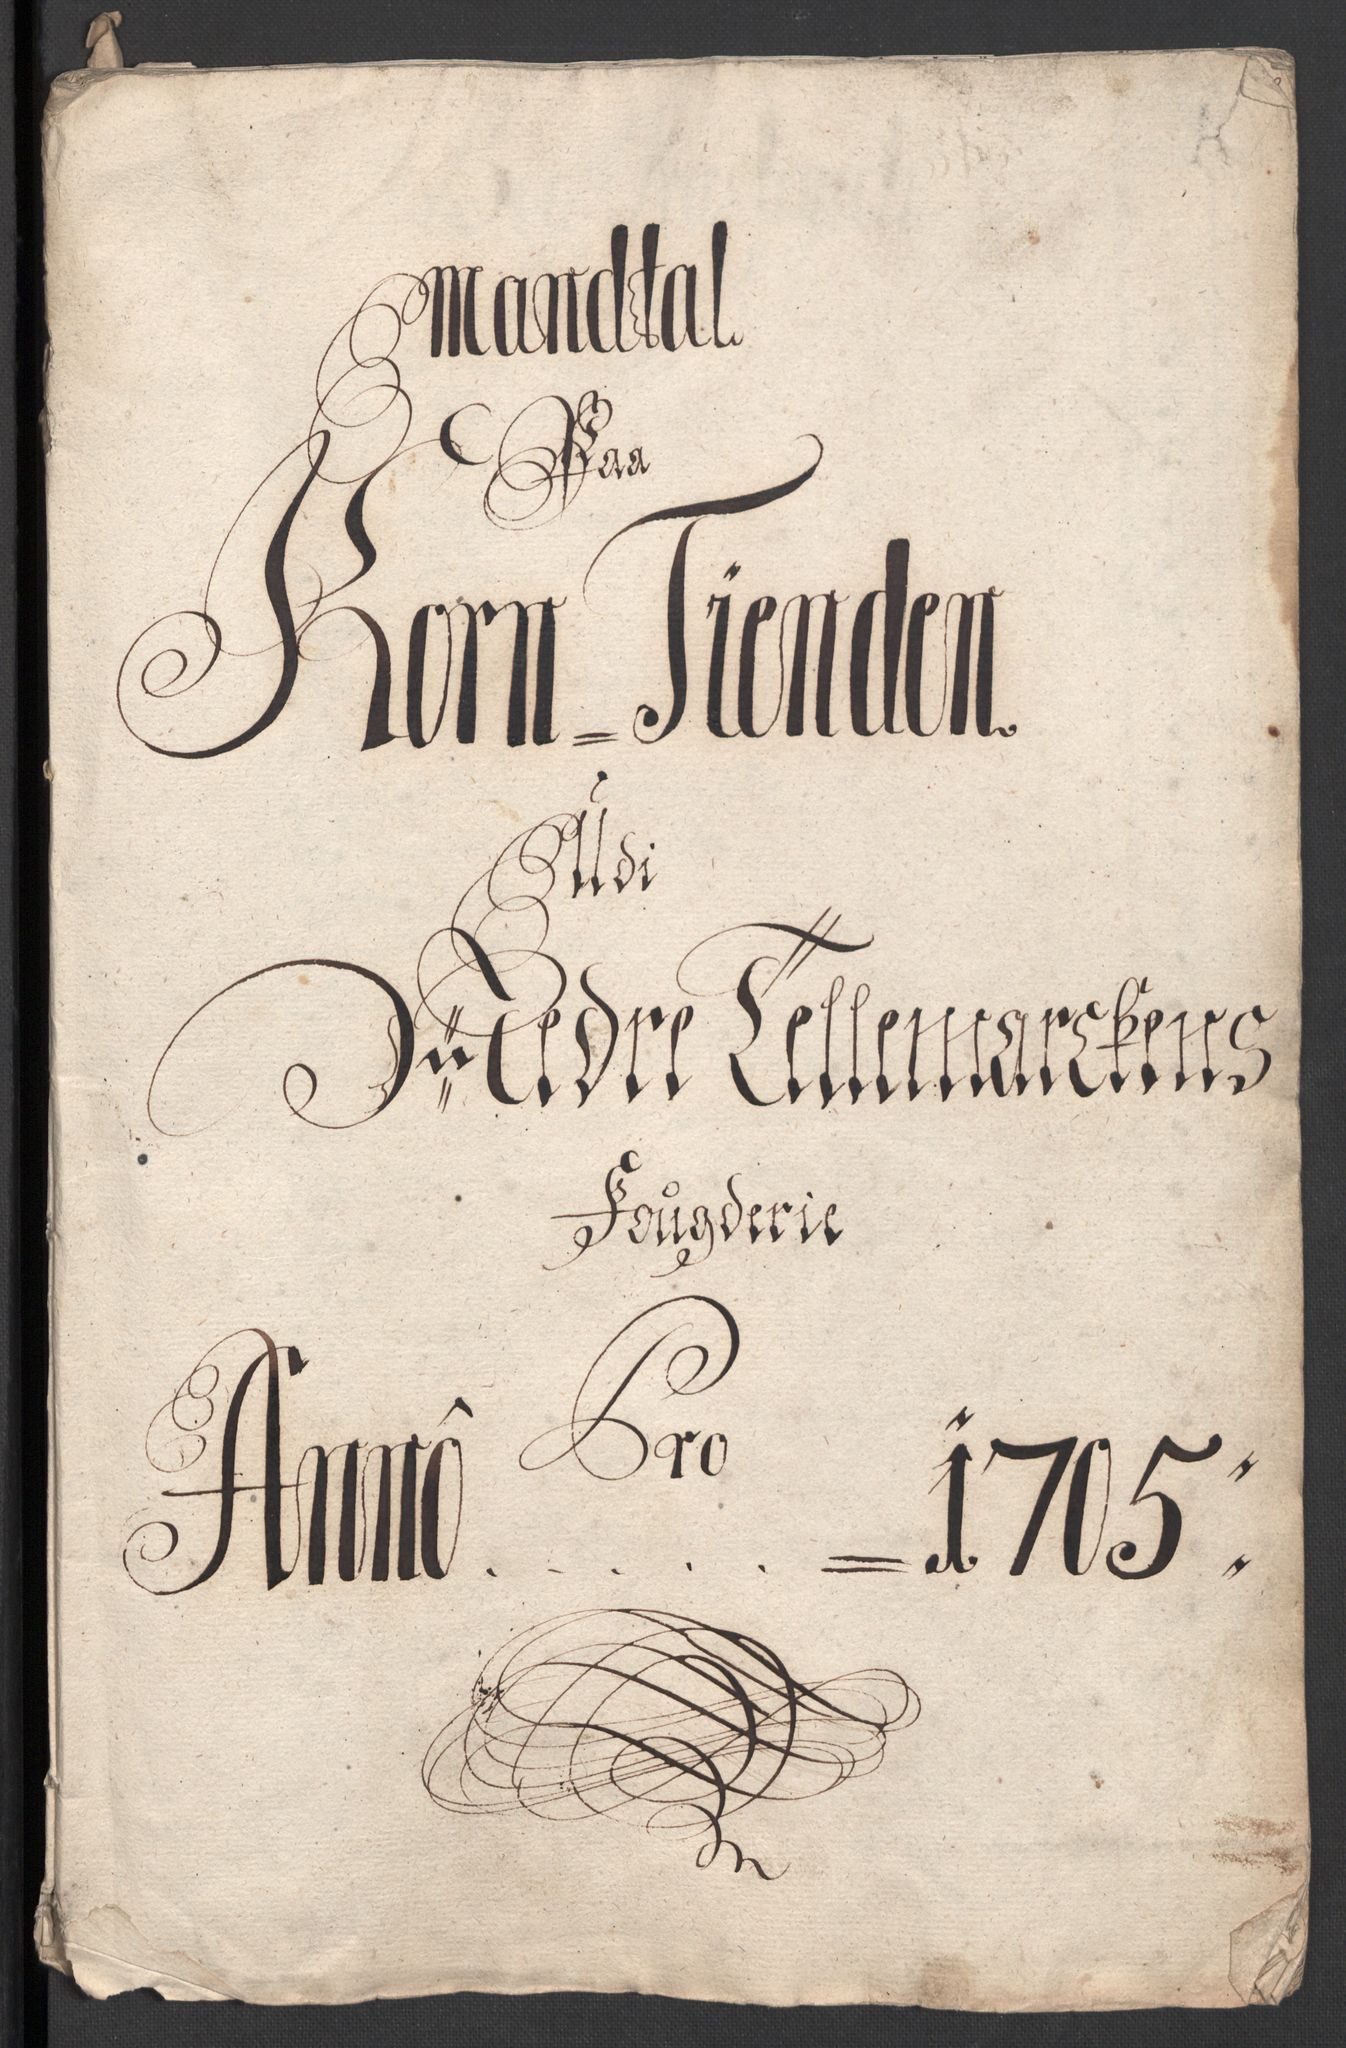 Mandtal
Paa
Korn = Tienden.
Udi
Nedre Tellemarckens
Fougderie
Pro
Annô . . . . . = 1705